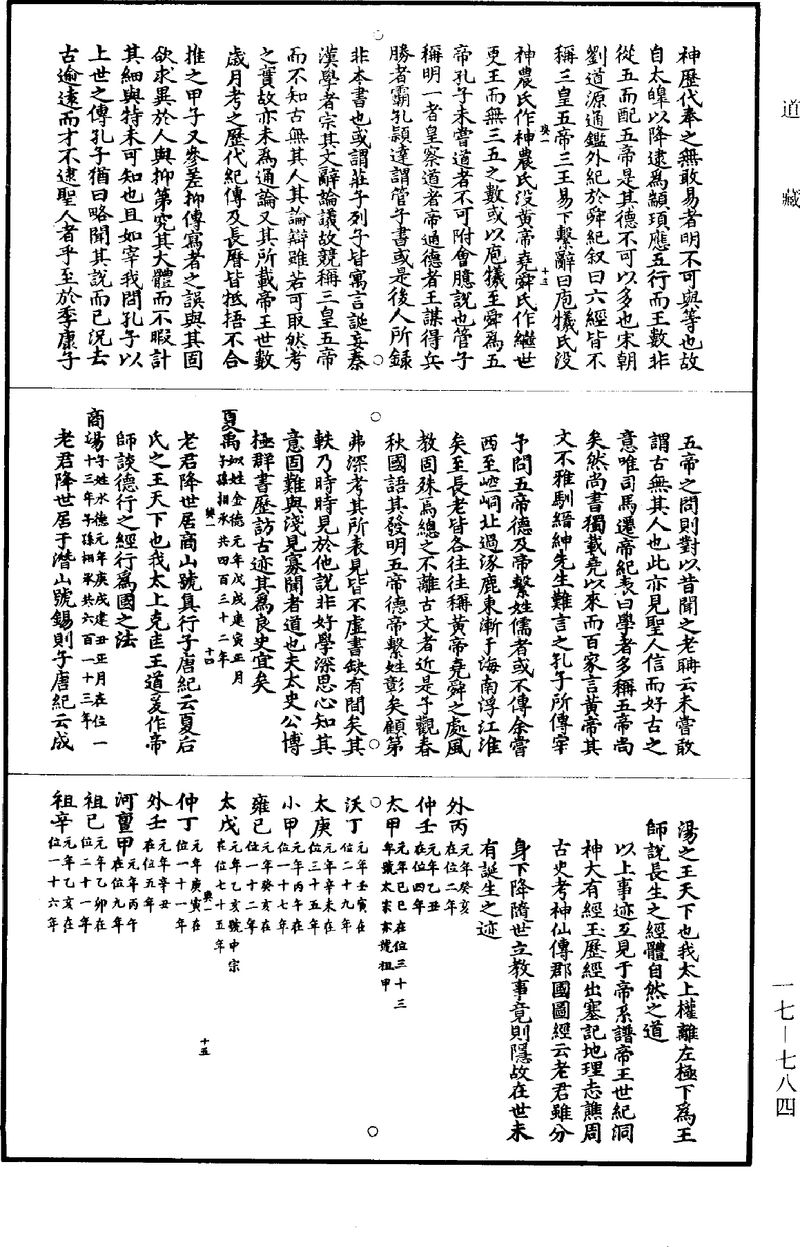 道藏
神歷代奉之無敢易者明不可與等也故
自太皥以降逮爲顓頊應五行而王數非
從五而配五帝是其德不可以多也宋朝
劉道源通鑑外紀於舜紀叙曰六經皆不
稱三皇五帝三王易下繫辭曰庖犧氏没
神農氏作神農氏没黃帝堯舜氏作繼世
更王而無三五之數或以庖犧至舜爲五
帝孔子未嘗道者不可附會臆説也管子
稱明一者皇察道者帝通德者王謀得兵
勝者霸孔頴達謂管子書或是後人所録
非本書也或謂莊子列子皆寓言誕妄秦
漢學者宗其文辭論議故競稱三皇五帝
而不知古無其人其論辯雖若可取然考
之實故亦未爲通論又其所載帝王世數
歲月考之歷代紀傳及長曆皆牴捂不合
推之甲子又參差抑傳寫者之誤與其固
欲求異於人與抑第究其大體而不暇計
其細與特未可知也且如宰我問孔子以
上世之傳孔子猶曰略聞其説而已况去
古逾遠而才不逮聖人者乎至於季康子
五帝之問則對以昔聞之老聃云未嘗敢
謂古無其人也此亦見聖人信而好古之
意唯司馬遷帝紀表曰學者多稱五帝尚
矣然尚書獨載堯以來而百家言黃帝其
文不雅馴縉紳先生難言之孔子所傳宰
予問五帝德及帝繫姓儒者或不傳余嘗
西至崆峒北過涿鹿東漸于海南浮江淮
矣至長老皆各往往稱黃帝堯舜之處風
教固殊焉總之不離古文者近是予觀春
秋國語其發明五帝德帝繫姓彰矣顧第
弗深考其所表見皆不虛書缺有間矣其
軼乃時時見於他説非好學深思心知其
意固難與淺見寡聞者道也夫太史公博
極群書歷訪古迹其爲良史宜矣
夏禹姒姓金德元年戊戌建寅正月
子孫相承共四百三十二年
老君降世居商山號真行子唐紀云夏后
氏之王天下也我太上克匡王道爰作帝
師談德行之經行爲國之法
商湯子姓水德元年庚戌建丑正月在位一
十三年子孫相承共六百一十三年
老君降世居于潛山號錫則子唐紀云成
湯之王天下也我太上權離左極下爲王
師説長生之經體自然之道
以上事迹互見于帝系譜帝王世紀洞
神大有經玉歷經出塞記地理志譙周
古史考神仙傳郡國圖經云老君雖分
身下降隨世立教事竟則隱故在世未
有誕生之迹
外丙元年癸亥
在位二年
仲壬元年乙丑
在位四年
太甲元年己巳在位三十三
年號太宗亦號祖甲
沃丁元年壬寅在
位二十九年
太庚元年辛未在
位三十五年
小甲元年丙午在
位一十七年
雍已元年癸亥在
位一十二年
太戊元年乙亥號中宗
在位七十五年
仲丁元年庚寅在
位一十一年
外壬元年辛丑
在位五年
河亶甲元年丙午
在位九年
祖已元年乙卯在
位二十一年
祖辛元年乙亥在
位一十六年
十三
十四
十五
一七—七八四